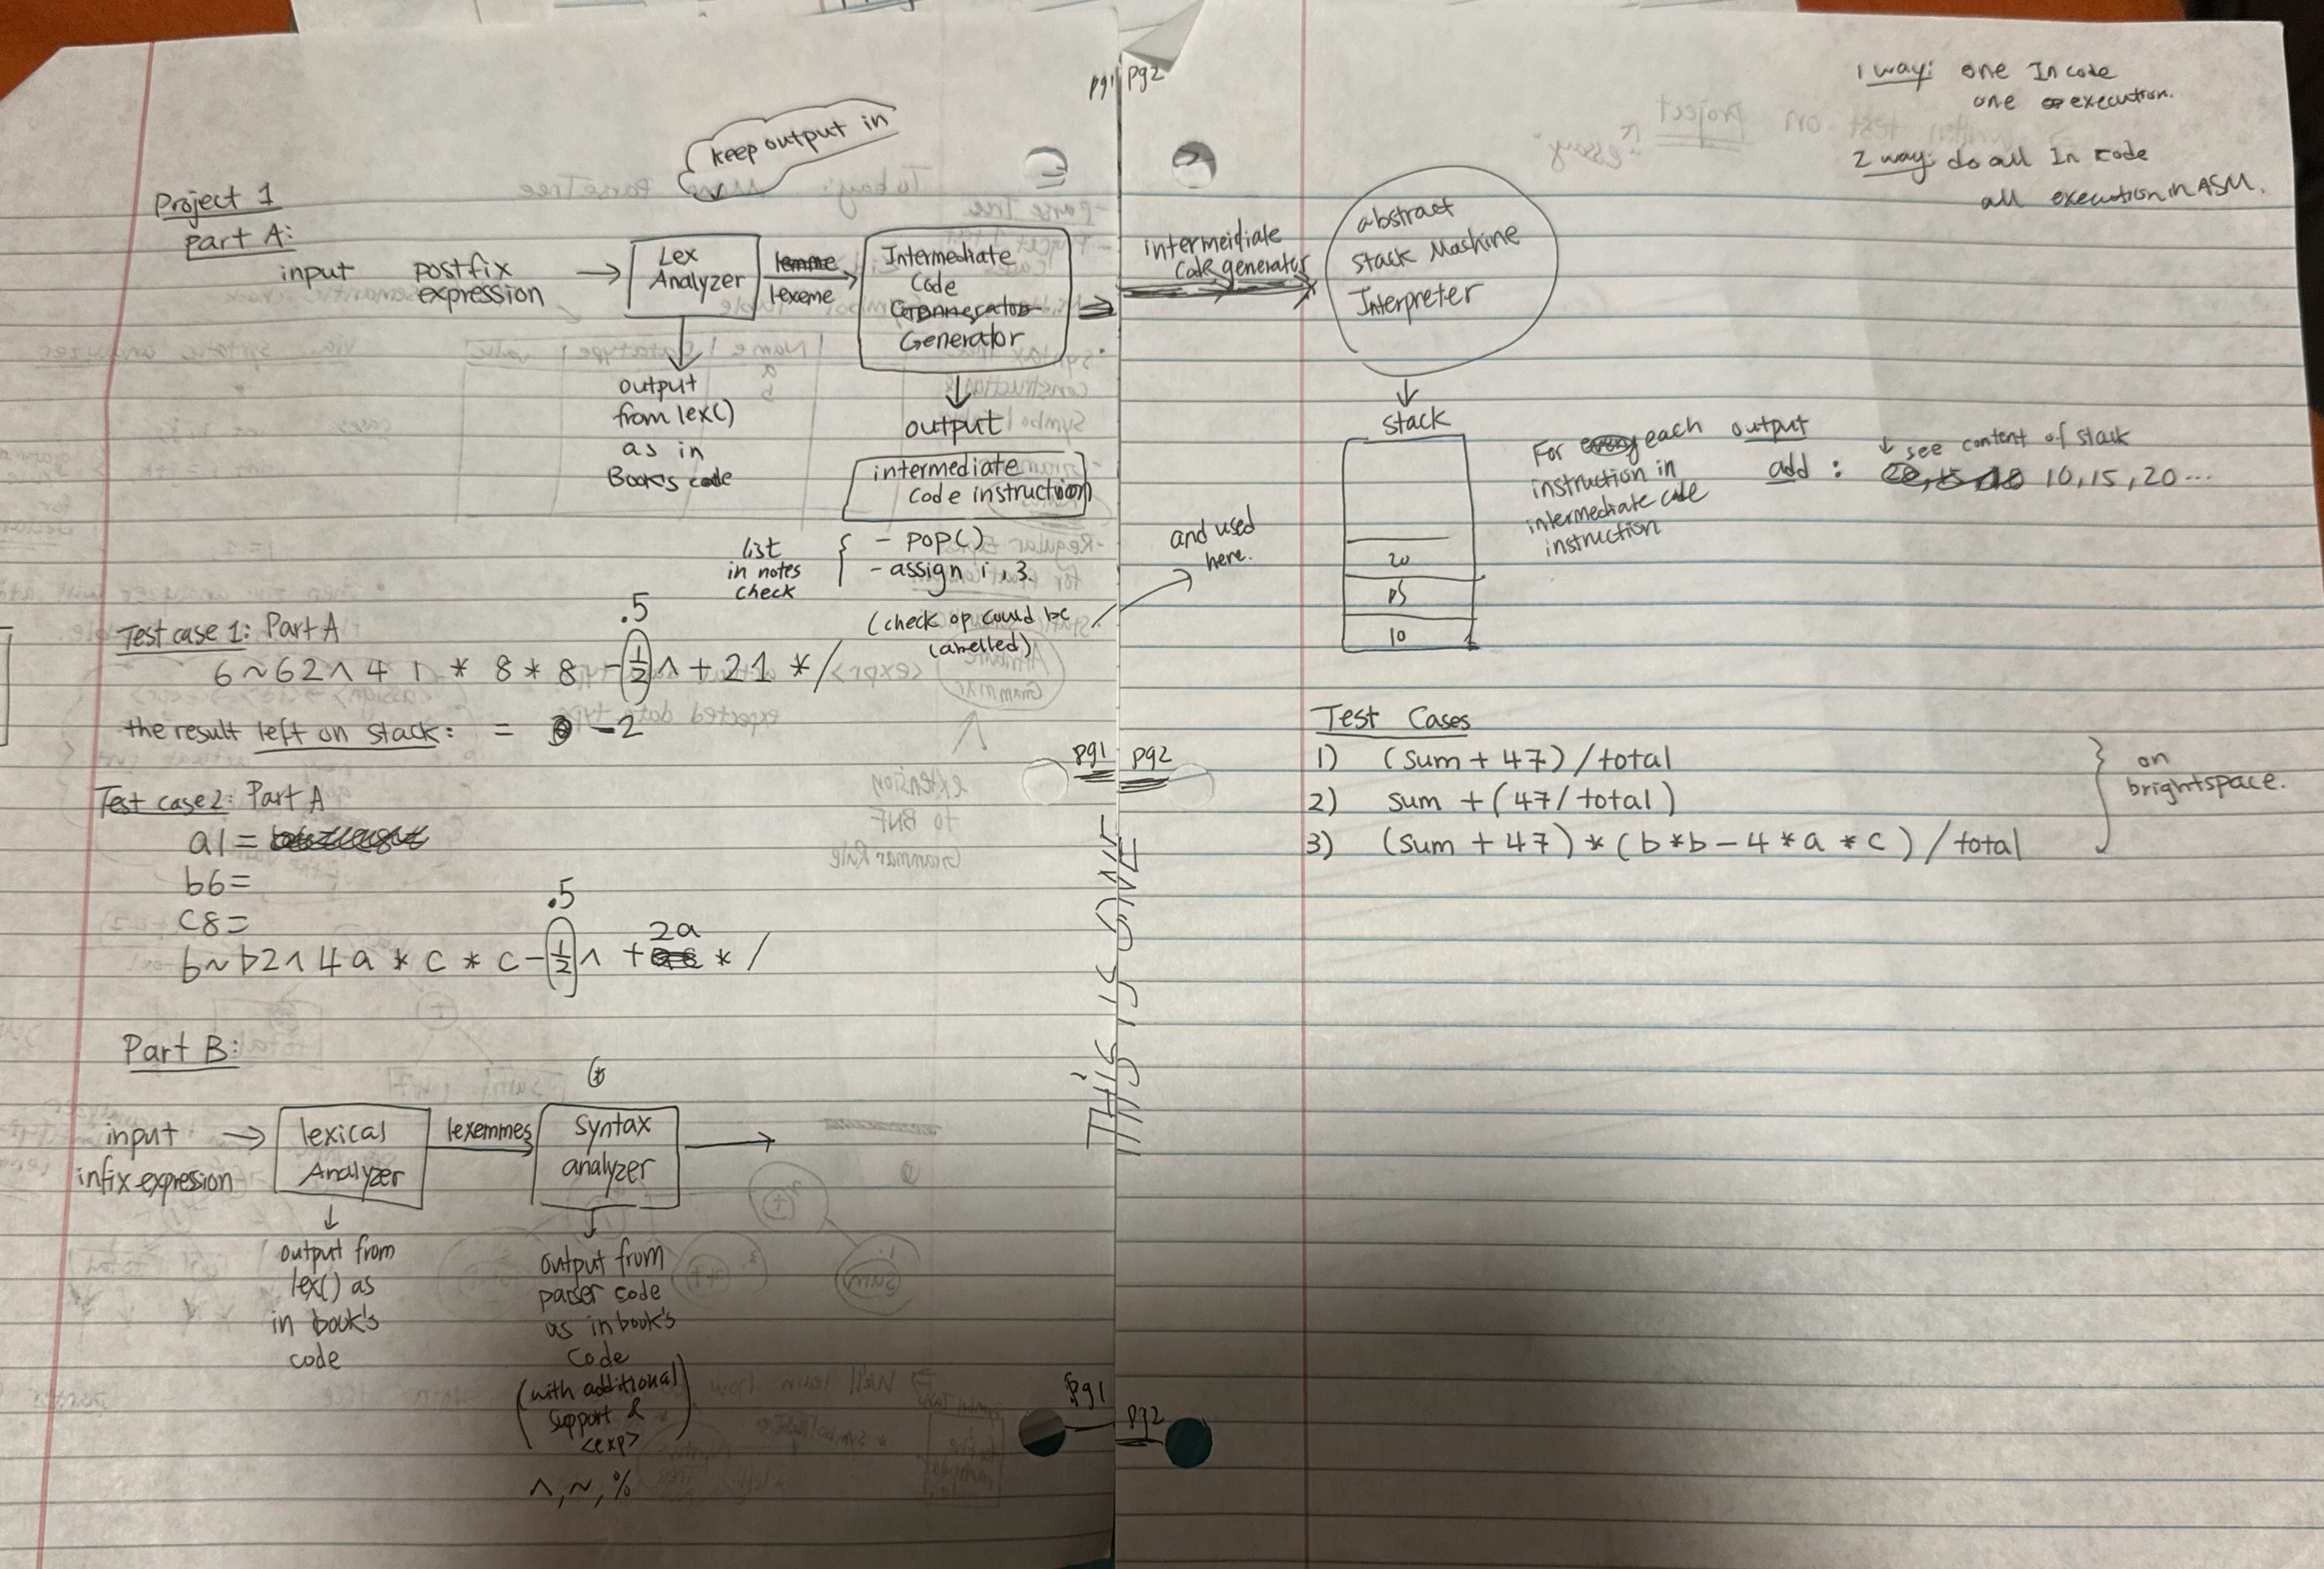 pg1 pg2
1 way: one In code
one execution.
2 way: do all In code
all execution in ASM.
keep output in
Project 1
Part A:
input postfix
expression
Lex
Analyzer
lemme
lexeme
Intermediate
Code
Generator
intermeidiate
Code generator
abstract
Stack Machine
Interpreter
output
from lex()
as in
Book's code
output
intermediate
code instruction
list
in notes
check
- pop()
- assign i, 3.
(check op could be
labelled)
and used
here.
stack
20
15
10
For each
instruction in
intermediate code
instruction
output
add :
↓ see content of stack
10, 15, 20 ...
Test case 1: Part A
.5
6 ~ 6 2 ^ 4 1 * 8 * 8 - 1/2 ^ + 2 1 * /
the result left on stack: = -2
Test case 2: Part A
a1 =
b6 =
c8 =
.5
2a
b ~ b 2 ^ 4 a * c * c - 1/2 ^ + * /
pg1 pg2
THIS IS ONE
Test Cases
1) (sum + 47) / total
2) sum + (47 / total)
3) (sum + 47) * (b * b - 4 * a * c) / total
on
brightspace.
Part B:
input
infix expresion
lexical
Analyzer
lexemmes
syntax
analyzer
output from
lex() as
in book's
code
output from
parser code
as in book's
Code
(with additional
support &
<exp>)
^, ~, %
pg1
pg2